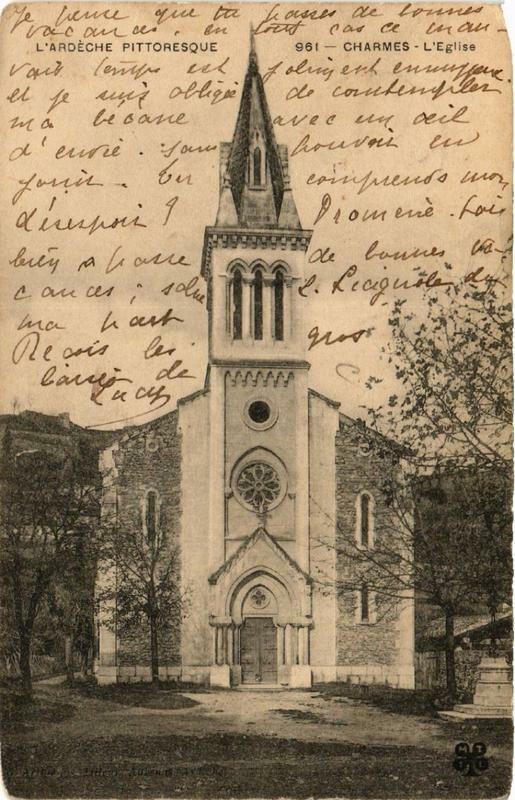 Je pense que tu passes de bonnes
vacances, en tout cas ce mau-
L'ARDÈCHE PITTORESQUE 961 — CHARMES - L'Eglise
vais temps est joliment ennuyeux
et je suis obligé de contempler
ma bécane avec un œil
d'envie. sans pouvoir en
jouir. Tu comprends mon
désespoir ! Promène-toi
bien, passe de bonnes va-
cances ; salue L. de
ma part gros
Reçois les
baisers de